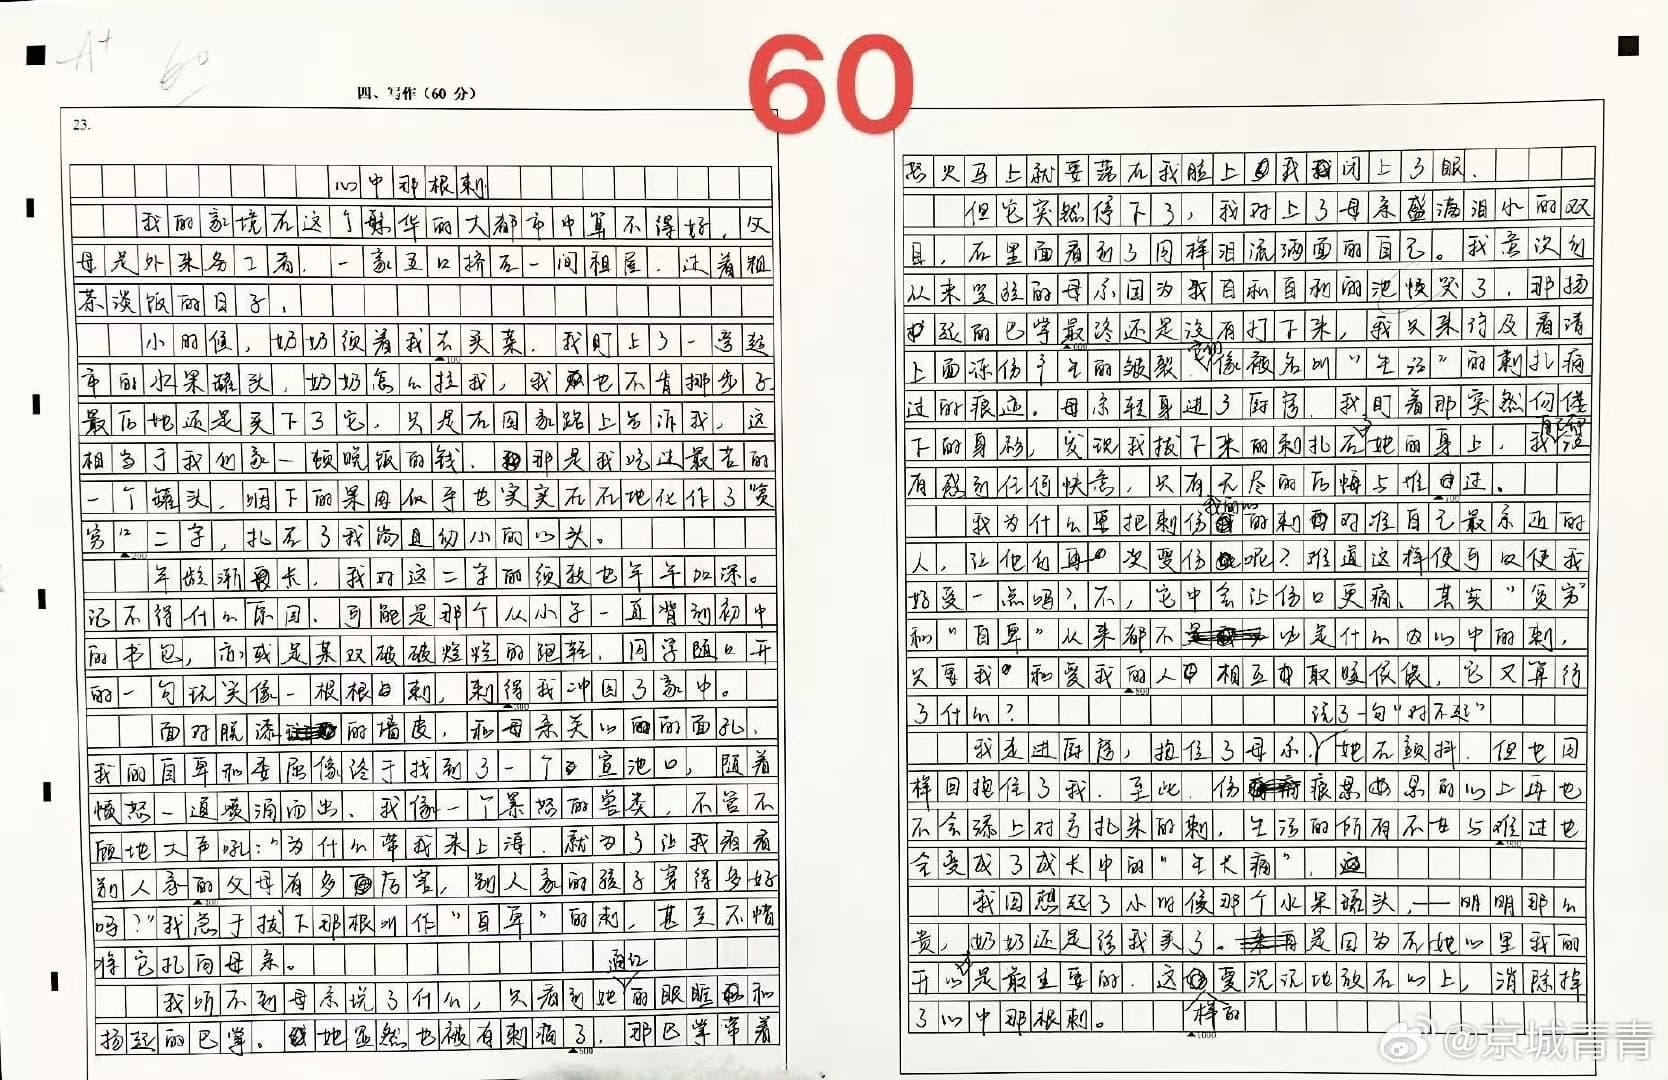 A+
60
60
四、写作（60 分）
23.
心中那根刺
我的家境在这个繁华的大都市中算不得好，父
母是外来务工者，一家五口挤在一间租屋，过着粗
茶淡饭的日子。
小的候，奶奶领着我去买菜，我盯上了一旁超
市的水果罐头，奶奶怎么拉我，我也不肯挪步子
最后她还是买下了它，只是在回家路上告诉我，这
相当于我们家一顿晚饭的钱，那是我吃过最苦的
一个罐头，咽下的果肉似乎也实实在在地化作了“贫
穷”二字，扎在了我尚且幼小的心头。
年龄渐长，我对这二字的领教也年年加深。
记不得什么原因，可能是那个从小学一直背到初中
的书包，亦或是某双破破烂烂的跑鞋，同学随口开
的一句玩笑像一根根刺，刺得我冲回了家中。
面对脱漆的墙皮，和母亲关心的面孔，
我的自卑和委屈像终于找到了一个宣泄口，随着
愤怒一道喷涌而出，我像一个暴怒的兽类，不管不
顾地大声吼：“为什么带我来上海，就为了让我看看
别人家的父母有多厉害，别人家的孩子穿得多好
吗？”我急于拔下那根叫作“自卑”的刺，甚至不惜
将它扎向母亲。
我听不到母亲说了什么，只看到她通红的眼眶和
扬起的巴掌。她显然也被有刺痛了，那巴掌带着
怒火马上就要落在我脸上，我闭上了眼，
但它突然停下了，我对上了母亲盛满泪水的双
目，在里面看到了同样泪流满面的自己。我意识到
从来坚强的母亲因为我自私自利的愤哭了，那扬
起的巴掌最终还是没有打下来，我只来得及看清
上面冻伤产生的皲裂，像被名叫“生活”的刺扎痛
过的痕迹。母亲转身进了厨房，我盯着那突然佝偻
下的身影，发现我拔下来的刺扎在了她的身上，我没
有感到任何快意，只有无尽的后悔与难过。
我为什么要把刺伤我的心的刺对准自己最亲近的
人，让他们再次受伤呢？难道这样便可以使我
好受一点吗？不，它只会让伤口更痛、其实“贫穷”
和“自卑”从来都不是什么心中的刺，
只要我和爱我的人相互取暖依偎，它又算得
了什么？
我走进厨房，抱住了母亲，说了一句“对不起”她在颤抖，但也同
样回抱住了我，至此，伤痕累累的心上再也
不会添上对亏扎来的刺，生活的所有不甘与难过也
会变成了成长中的“生长痛”，
我回想起了小时候那个水果罐头，——明明那么
贵，奶奶还是给我买了。是因为在她心里我的
开心是最重要的，这样的爱沉沉地放在心上，消除掉
了心中那根刺。
@京城青青